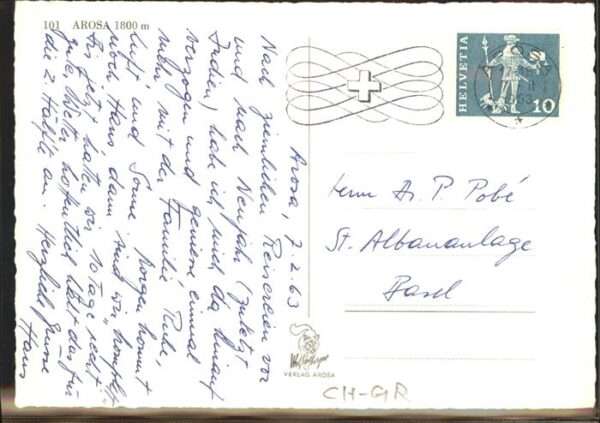 101 AROSA 1800 m
Arosa, 7.2.63
Nach ziemlichen Reisereien vor
und nach Neujahr (zuletzt
Indien) habe ich mich da hinauf
verzogen und geniesse einmal
mit der Familie Ruhe,
Luft und Sonne. Morgen kommt
noch Hans dann sind wir komplett
Bis jetzt hatten wir 10 Tage recht
gutes Wetter hoffentlich hält das für
die 2. Hälfte an. Herzliche Grüsse
Hans
HELVETIA
10
Herrn Dr. P. Pobé
St. Albananlage
Basel
VERLAG AROSA
CH-GR